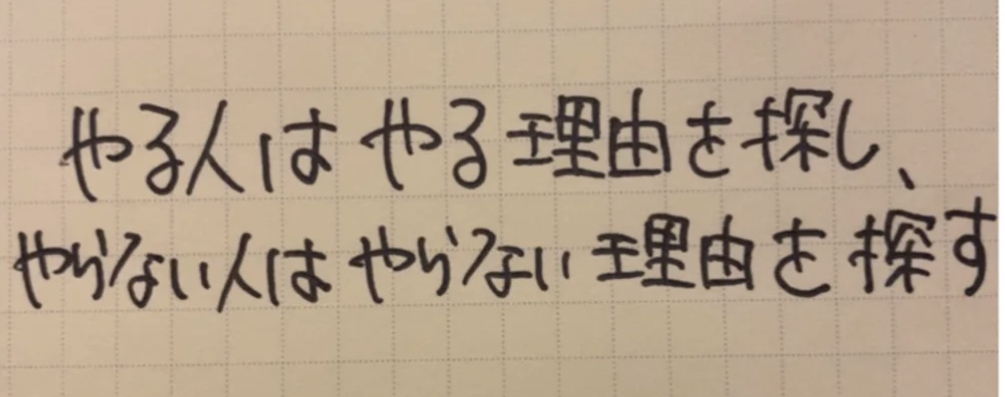 やる人はやる理由を探し、
やらない人はやらない理由を探す